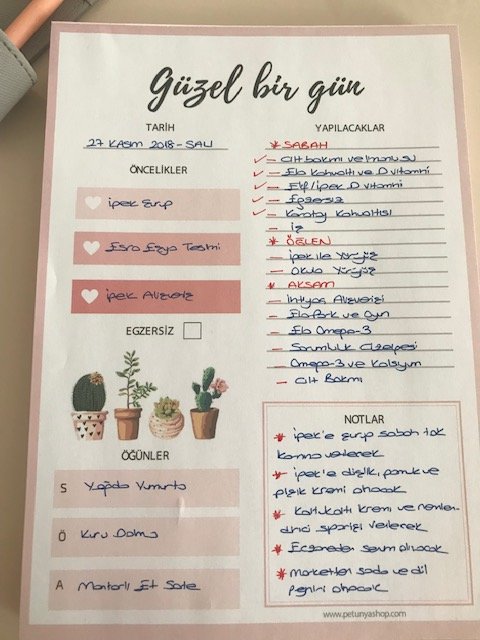 Güzel bir gün
TARİH
27 KASIM 2018 - SALI
ÖNCELİKLER
İpek Şurup
Esra Eşya Teslmi
İpek Alışveriş
EGZERSİZ
ÖĞÜNLER
S Yağda Yumurta
Ö Kuru Dolma
A Mantarlı Et Sote
YAPILACAKLAR
* SABAH
- Cilt bakımı ve limonlu su
- Ela Kahvaltı ve D vitamini
- Elif/İpek D vitamini
- Egzersiz
- Karatay Kahvaltısı
- İş
* ÖĞLEN
- İpek ile Yürüyüş
- Okula Yürüyüş
* AKŞAM
- İhtiyaç Alışverişi
- Ela Park ve Oyun
- Ela Omega-3
- Sorumluluk Çizelgesi
- Omega-3 ve Kalsiyum
- Cilt Bakımı
NOTLAR
* İpek'e şurup sabah tok
karnına verilecek
* İpek'e dişlik, pamuk ve
pişik kremi alınacak
* Kaş kremi ve nemlen-
dirici siparişi verilecek
* Eczaneden serum alınacak
* Marketten soda ve dil
peyniri alınacak
www.petunyashop.com